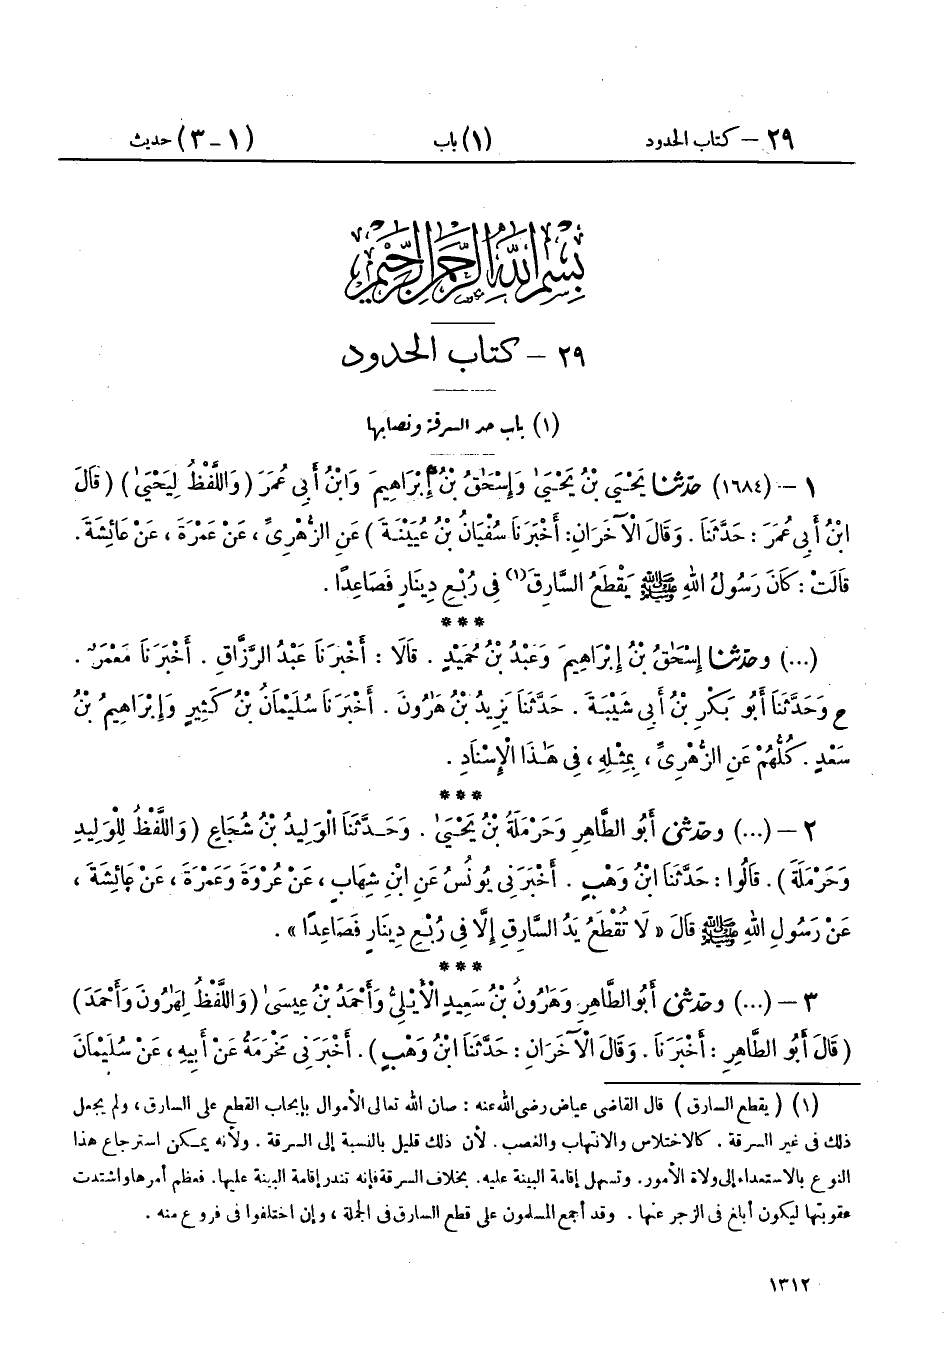 ٢٩ – كتاب الحدود (١) باب (١ – ٣) حديث
بسم الله الرحمن الرحيم
٢٩ – كتاب الحدود
(١) باب حد السرقة ونصابها
١ – (١٦٨٤) حدثنا يَحْيَىٰ بْنُ يَحْيَىٰ وَإِسْحَٰقُ بْنُ إِبْرَاهِيمَ وَابْنُ أَبِي عُمَرَ (وَاللَّفْظُ لِيَحْيَىٰ) (قَالَ
ابْنُ أَبِي عُمَرَ : حَدَّثَنَا . وَقَالَ الْآخَرَانِ: أَخْبَرَنَا سُفْيَانُ بْنُ عُيَيْنَةَ) عَنِ الزُّهْرِيِّ ، عَنْ عَمْرَةَ ، عَنْ عَائِشَةَ .
قَالَتْ : كَانَ رَسُولُ اللهِ ﷺ يَقْطَعُ السَّارِقَ(١) فِي رُبْعِ دِينَارٍ فَصَاعِدًا .
* * *
(...) وحدثنا إِسْحَٰقُ بْنُ إِبْرَاهِيمَ وَعَبْدُ بْنُ حُمَيْدٍ . قَالَا : أَخْبَرَنَا عَبْدُ الرَّزَّاقِ . أَخْبَرَنَا مَعْمَرٌ .
ح وَحَدَّثَنَا أَبُو بَكْرِ بْنُ أَبِي شَيْبَةَ . حَدَّثَنَا يَزِيدُ بْنُ هَٰرُونَ . أَخْبَرَنَا سُلَيْمَانُ بْنُ كَثِيرٍ وَإِبْرَاهِيمُ بْنُ
سَعْدٍ . كُلُّهُمْ عَنِ الزُّهْرِيِّ ، بِمِثْلِهِ ، فِي هَٰذَا الْإِسْنَادِ .
* * *
٢ – (...) وحدثني أَبُو الطَّاهِرِ وَحَرْمَلَةُ بْنُ يَحْيَىٰ . وَحَدَّثَنَا الْوَلِيدُ بْنُ شُجَاعٍ (وَاللَّفْظُ لِلْوَلِيدِ
وَحَرْمَلَةَ) . قَالُوا : حَدَّثَنَا ابْنُ وَهْبٍ . أَخْبَرَنِي يُونُسُ عَنِ ابْنِ شِهَابٍ ، عَنْ عُرْوَةَ وَعَمْرَةَ ، عَنْ عَائِشَةَ ،
عَنْ رَسُولِ اللهِ ﷺ قَالَ « لَا تُقْطَعُ يَدُ السَّارِقِ إِلَّا فِي رُبْعِ دِينَارٍ فَصَاعِدًا » .
* * *
٣ – (...) وحدثني أَبُو الطَّاهِرِ وَهَٰرُونُ بْنُ سَعِيدٍ الْأَيْلِيُّ وَأَحْمَدُ بْنُ عِيسَىٰ (وَاللَّفْظُ لِهَٰرُونَ وَأَحْمَدَ)
(قَالَ أَبُو الطَّاهِرِ : أَخْبَرَنَا . وَقَالَ الْآخَرَانِ : حَدَّثَنَا ابْنُ وَهْبٍ) . أَخْبَرَنِي مَخْرَمَةُ عَنْ أَبِيهِ ، عَنْ سُلَيْمَانَ
(١) (يقطع السارق) قال القاضى عياض رضى الله عنه : صان الله تعالى الأموال بإيجاب القطع على السارق ، ولم يجعل
ذلك فى غير السرقة . كالاختلاس والانتهاب والغصب . لأن ذلك قليل بالنسبة إلى السرقة . ولأنه يمكن استرجاع هذا
النوع بالاستعداء إلى ولاة الأمور . وتسهل إقامة البينة عليه . بخلاف السرقة فإنه تندر إقامة البينة عليها . فعظم أمرها واشتدت
عقوبتها ليكون أبلغ فى الزجر عنها . وقد أجمع المسلمون على قطع السارق فى الجملة ، وإن اختلفوا فى فروع منه .
١٣١٢